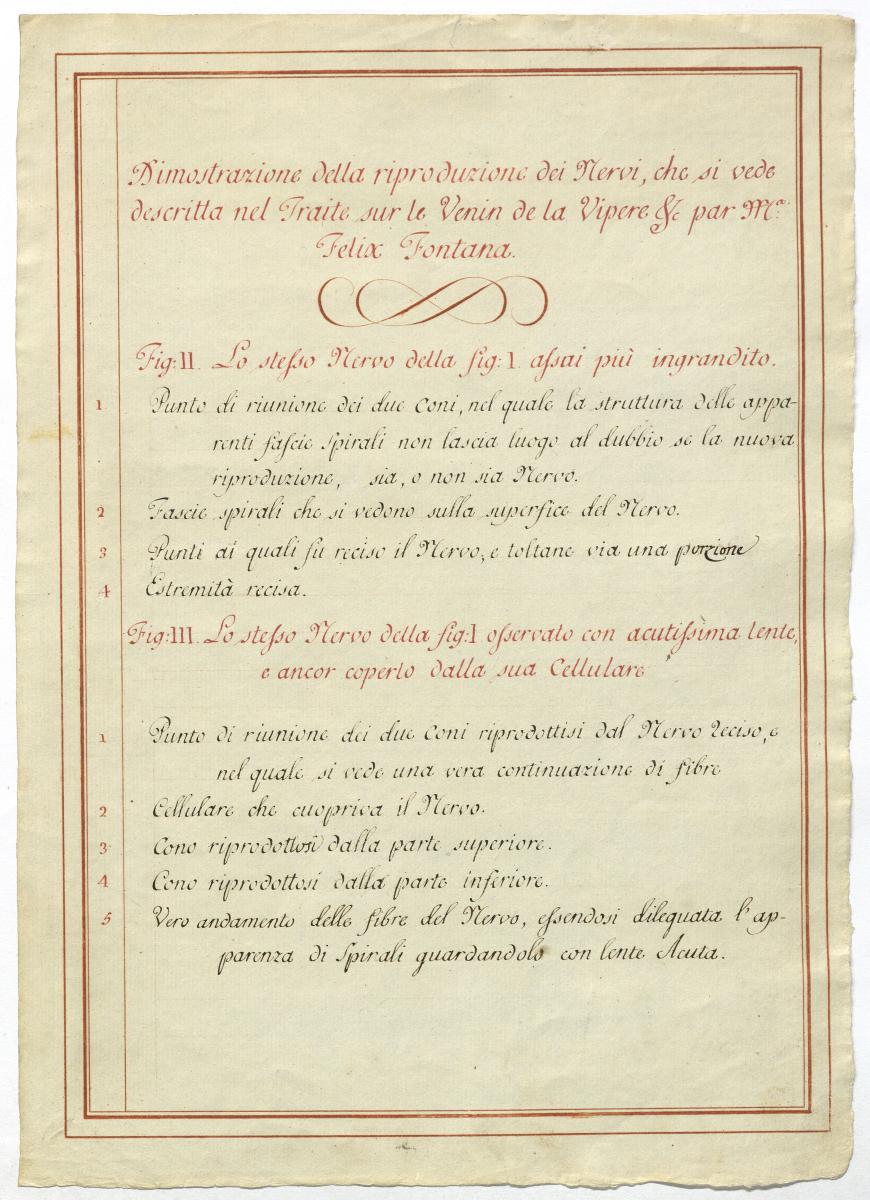 Dimostrazione della riproduzione dei Nervi, che si vede
descritta nel Traite sur le Venin de la Vipere &c par Mr.
Felix Fontana.
Fig: II. Lo stesso Nervo della fig: I. assai più ingrandito.
1 Punto di riunione dei due Coni, nel quale la struttura delle appa-
renti fascie spirali non lascia luogo al dubbio se la nuova
riproduzione, sia, o non sia Nervo.
2 Fascie spirali che si vedono sulla superfice del Nervo.
3 Punti ai quali fu reciso il Nervo, e toltane via una porzione
4 Estremità recisa.
Fig: III. Lo stesso Nervo della fig: I osservato con acutissima lente,
e ancor coperto dalla sua Cellulare
1 Punto di riunione dei due Coni riprodottisi dal Nervo Reciso, e
nel quale si vede una vera continuazione di fibre
2 Cellulare che cuopriva il Nervo.
3 Cono riprodottosi dalla parte superiore.
4 Cono riprodottosi dalla parte inferiore.
5 Vero andamento delle fibre del Nervo, essendosi dileguata l'ap-
parenza di Spirali guardandolo con lente Acuta.